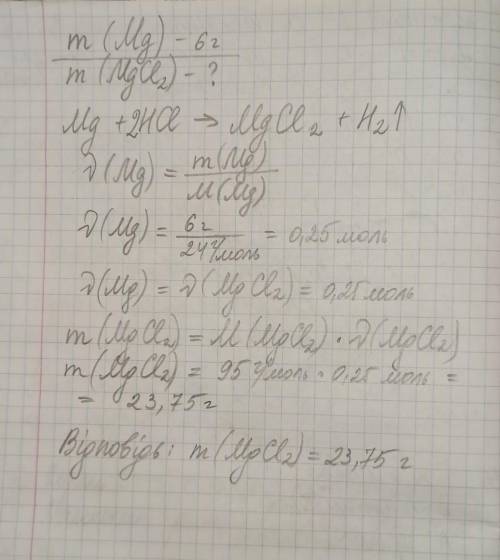 m (Mg) - 6г
m (MgCl₂) - ?
Mg + 2HCl → MgCl₂ + H₂↑
ν(Mg) = m(Mg)/M(Mg)
ν(Mg) = 6г/24г/моль = 0,25 моль
ν(Mg) = ν(MgCl₂) = 0,25 моль
m(MgCl₂) = M(MgCl₂) · ν(MgCl₂)
m(MgCl₂) = 95 г/моль · 0,25 моль =
= 23,75 г
Відповідь: m(MgCl₂) = 23,75 г